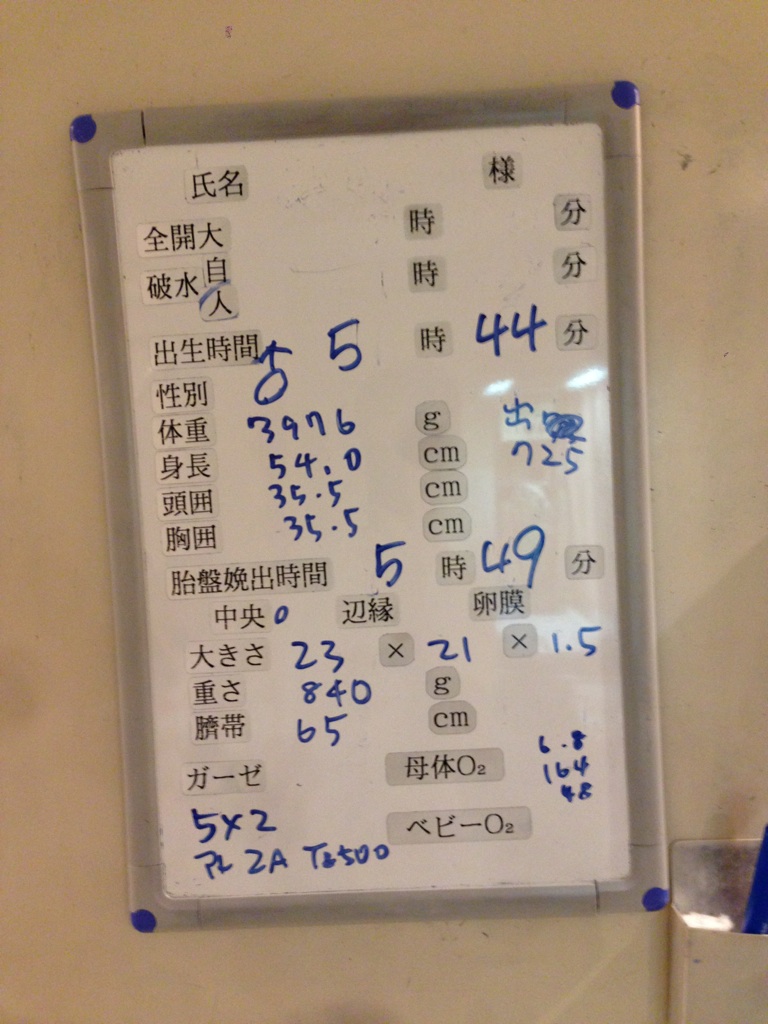 氏名 様
全開大 時 分
破水 自 時 分
人
出生時間 5 時 44 分
性別 ♂
体重 3976 g 出
身長 54.0 cm 725
頭囲 35.5 cm
胸囲 35.5 cm
胎盤娩出時間 5 時 49 分
中央 0 辺縁 卵膜
大きさ 23 × 21 × 1.5
重さ 840 g
臍帯 65 cm
ガーゼ 母体O₂ 6.8
164
48
5×2 ベビーO₂
2A 500